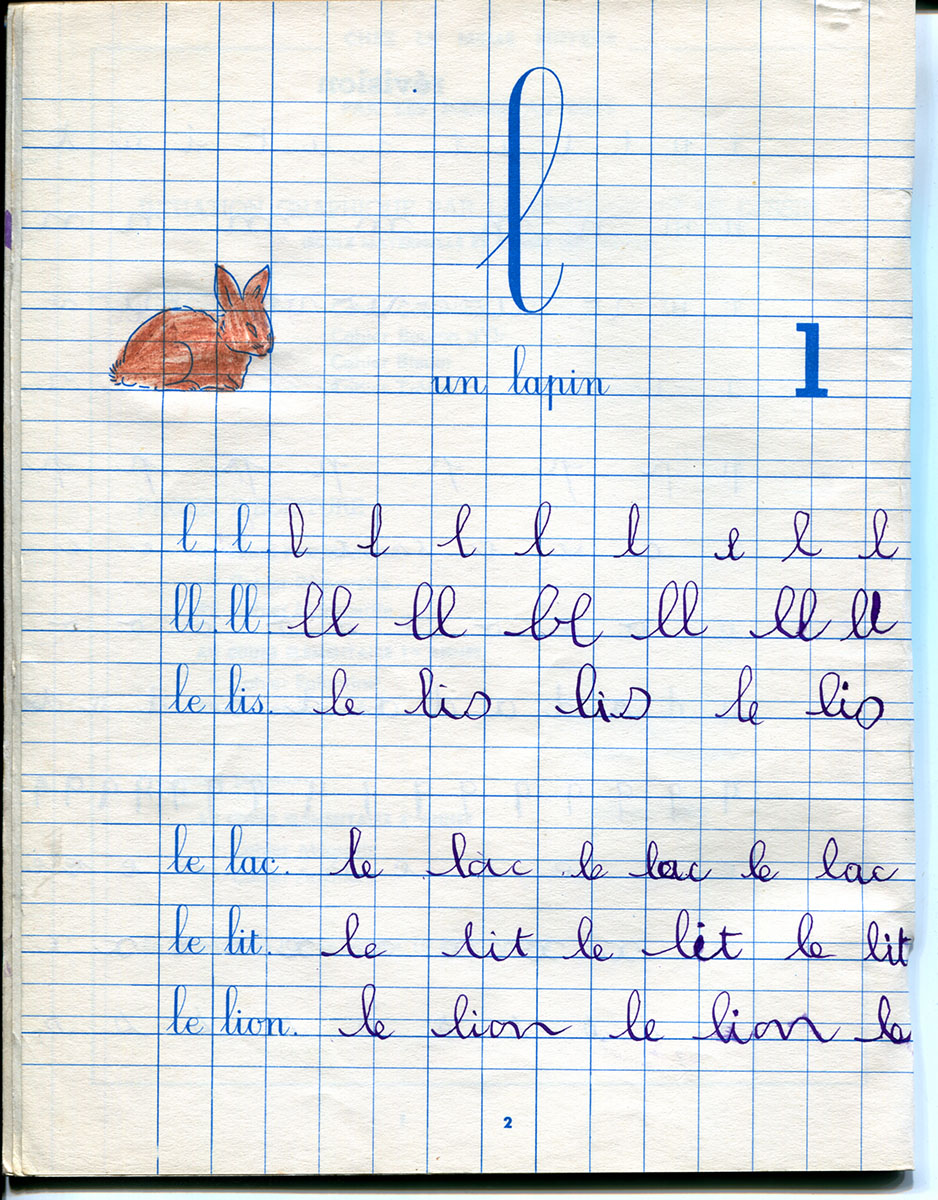 l
un lapin l
l. l. l l l l l l l l
ll. ll. ll ll ll ll ll ll
le lis. le lis lis le lis
le lac. le lac le lac le lac
le lit. le lit le lit le lit
le lion. le lion le lion le
2